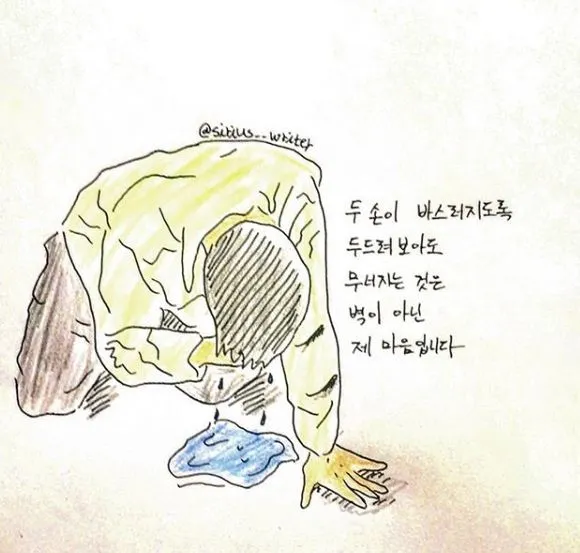 @sirius__writer
두 손이 바스러지도록
두드려 보아도
무너지는 것은
벽이 아닌
제 마음입니다